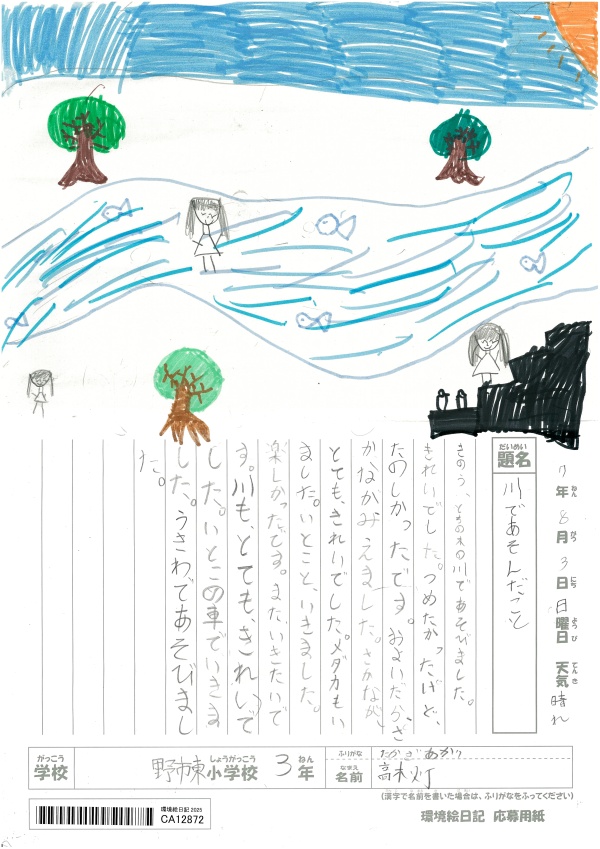 7年 8月 3日 日曜日 天気 晴れ
ねん がつ にち ようび てんき
だいめい
題名
川であそんだこと
きのう、ともの木の川であそびました。
きれいでした。つめたかったけど、
たのしかったです。およいだら、さ
かながみえました。さかなが、
とても、きれいでした。メダカもい
ました。いとこと、いきました。
楽しかったです。また、いきたいで
す。川も、とても、きれいで
した。いとこの車でいきま
した。うきわであそびまし
た。
がっこう
学校
野市東小学校 3年
しょうがっこう ねん
ふりがな たかぎ あかり
なまえ
名前 高木灯
(漢字で名前を書いた場合は、ふりがなをふってください)
環境絵日記 2025
CA12872
環境絵日記 応募用紙